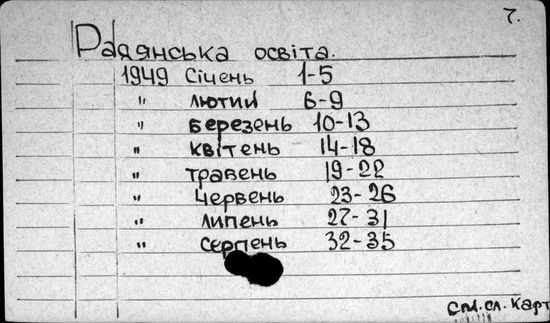 7.
Радянська освіта.
1949 Січень 1-5
" лютий 6-9
" березень 10-13
" квітень 14-18
" травень 19-22
" Червень 23-26
" липень 27-31
" серпень 32-35
См.сл. карт